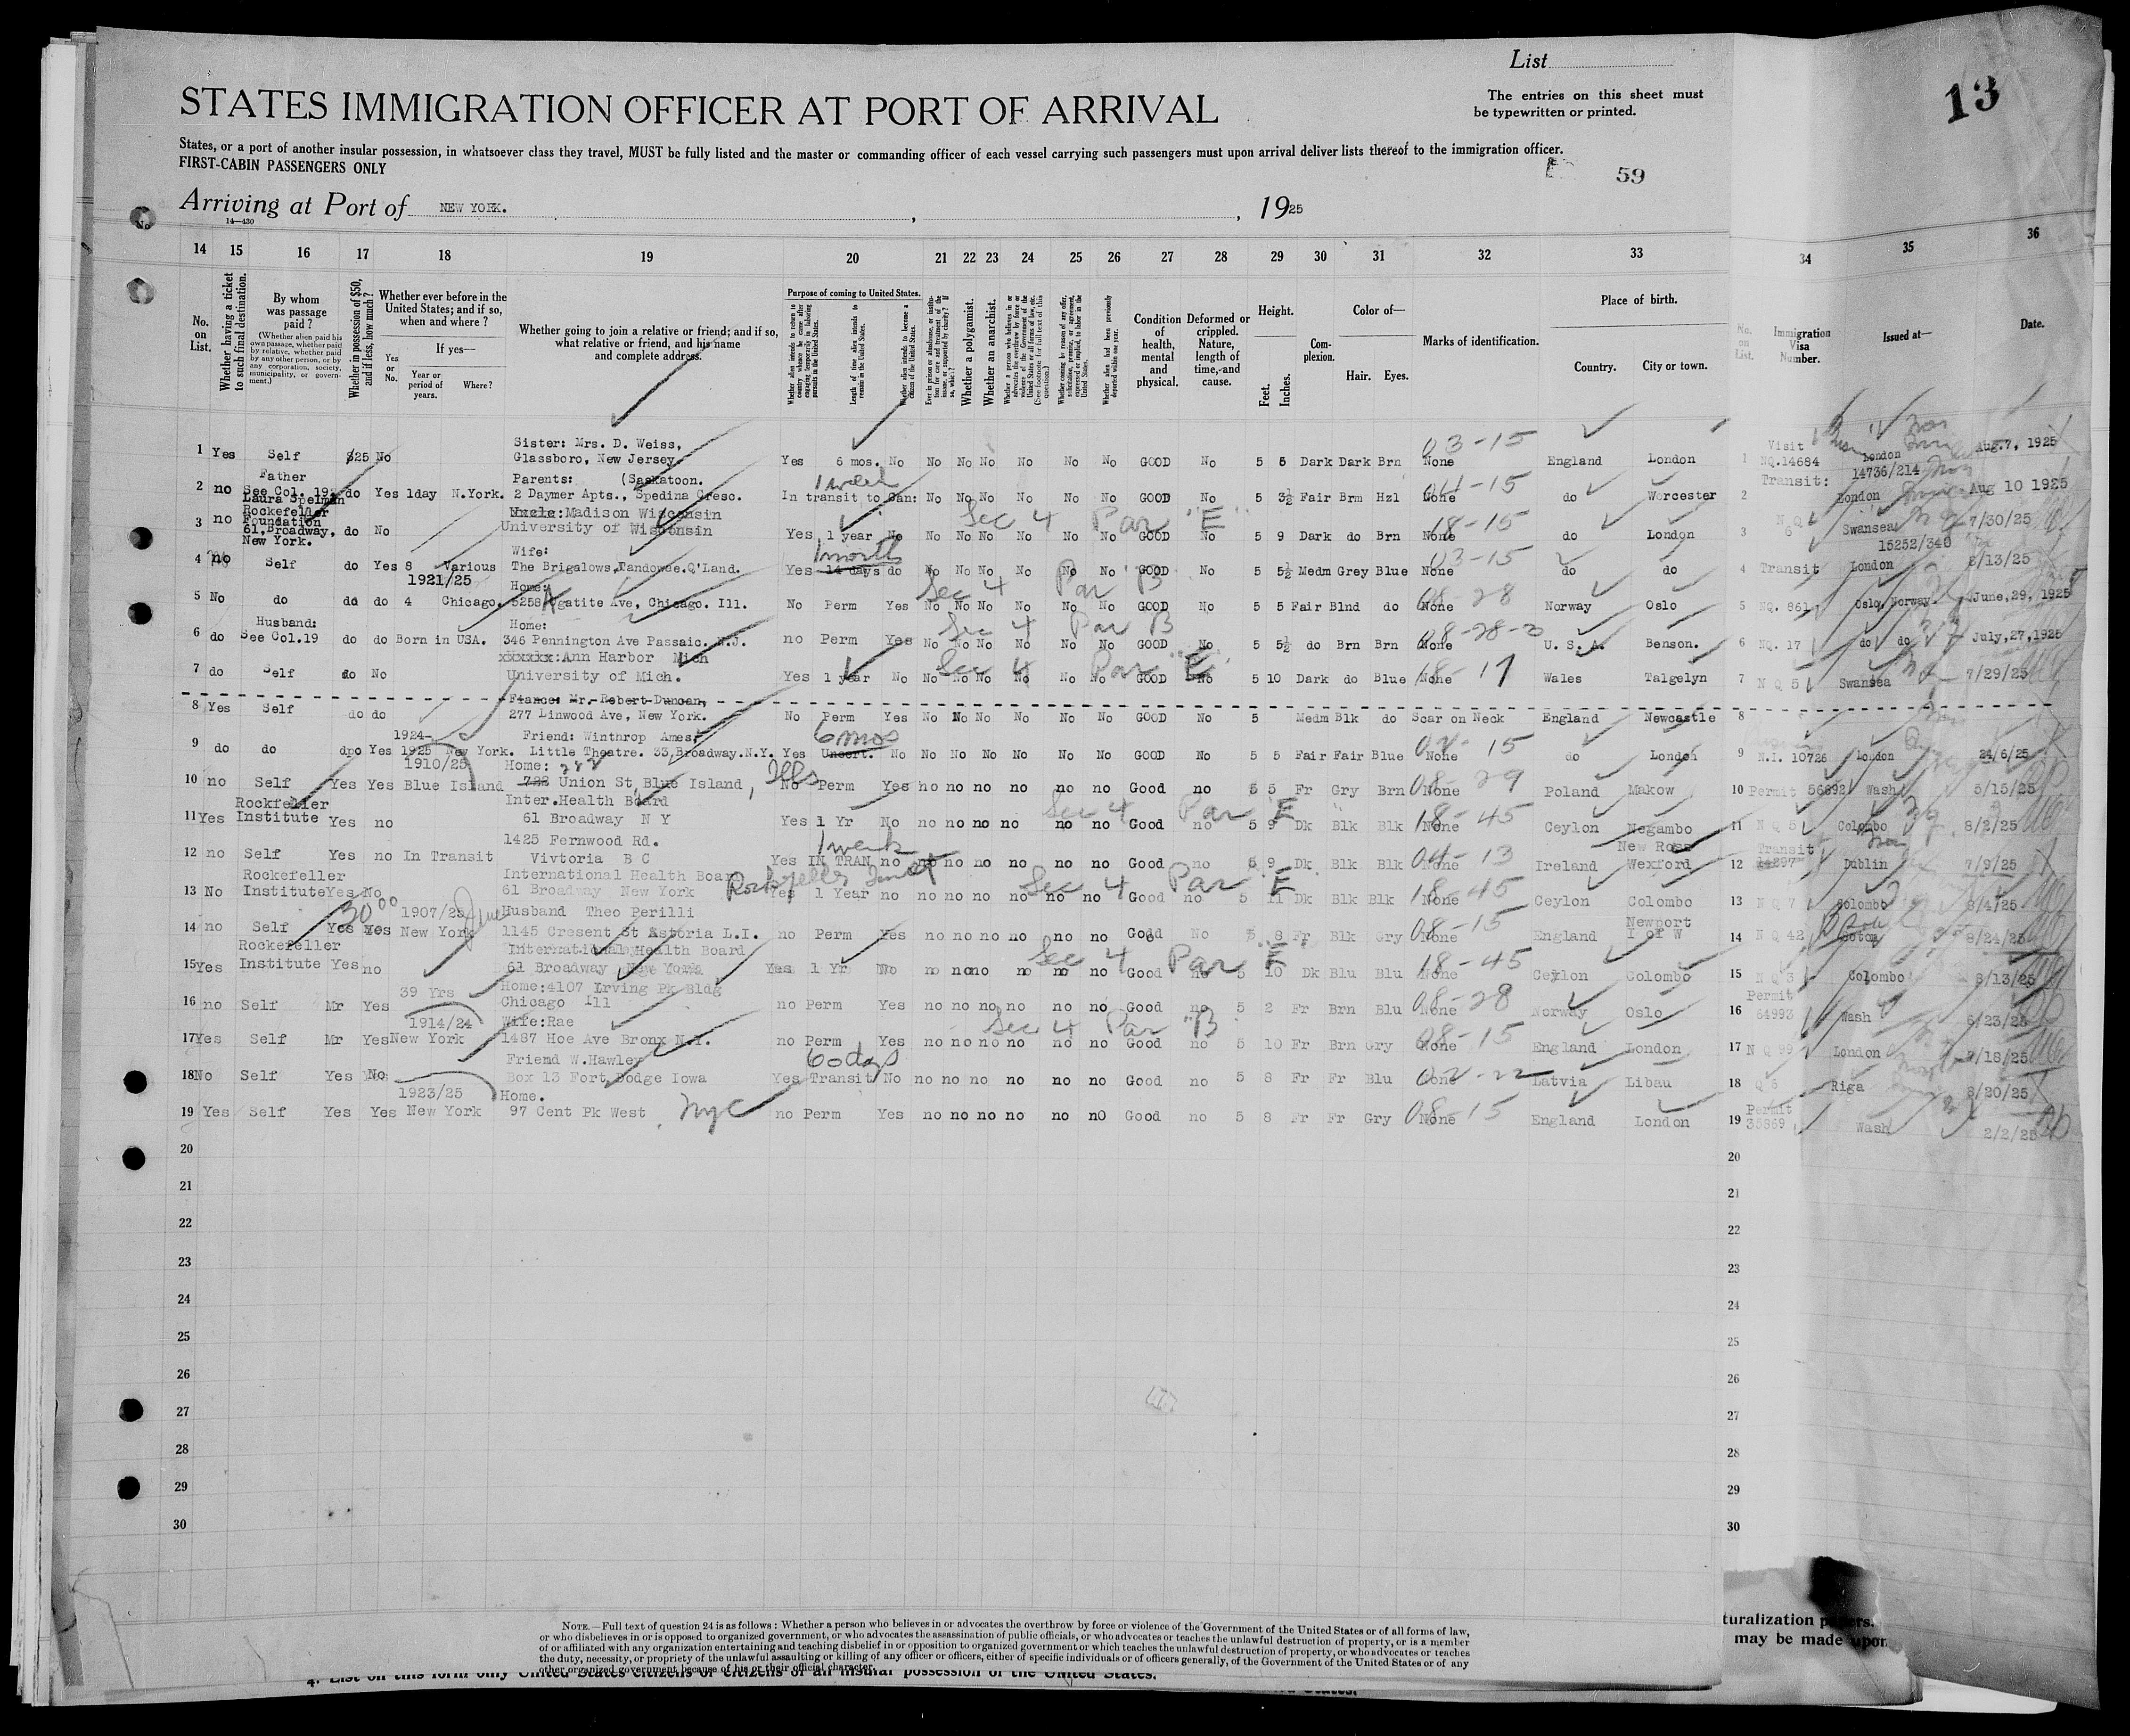 List
13
The entries on this sheet must
be typewritten or printed.
STATES IMMIGRATION OFFICER AT PORT OF ARRIVAL
States, or a port of another insular possession, in whatsoever class they travel, MUST be fully listed and the master or commanding officer of each vessel carrying such passengers must upon arrival deliver lists thereof to the immigration officer.
FIRST-CABIN PASSENGERS ONLY
59
Arriving at Port of NEW YORK. , , 1925
14—430
14 15 16 17 18 19 20 21 22 23 24 25 26 27 28 29 30 31 32 33 34 35 36
No. on List.
Whether having a ticket to such final destination.
By whom was passage paid?
(Whether alien paid his own passage, whether paid by relative, whether paid by any other person, or by any corporation, society, municipality, or government.)
Whether in possession of $50, and if less, how much?
Whether ever before in the United States; and if so, when and where?
If yes—
Yes or No.
Year or period of years.
Where?
Whether going to join a relative or friend; and if so, what relative or friend, and his name and complete address.
Purpose of coming to United States.
Whether alien intends to return to country whence he came after engaging temporarily in laboring pursuits in the United States.
Length of time alien intends to remain in the United States.
Whether alien intends to become a citizen of the United States.
Ever in prison or almshouse, or institution for care and treatment of the insane, or supported by charity? If so, which?
Whether a polygamist.
Whether an anarchist.
Whether a person who believes in or advocates the overthrow by force or violence of the Government of the United States or all forms of law, etc. (See footnote for full text of this question.)
Whether coming by reason of any offer, solicitation, promise, or agreement, expressed or implied, to labor in the United States.
Whether alien had been previously deported within one year.
Condition of health, mental and physical.
Deformed or crippled. Nature, length of time, and cause.
Height.
Feet. Inches.
Complexion.
Color of—
Hair. Eyes.
Marks of identification.
Place of birth.
Country. City or town.
No. on List.
Immigration Visa Number.
Issued at—
Date.
Sister: Mrs. D. Weiss, 03-15
1 Yes Self $25 No Glassboro, New Jersey. Yes 6 mos. No No No No No No No GOOD No 5 5 Dark Dark Brn None England London 1 Visit NQ.14684 London Aug.7, 1925
Father Parents: (Saskatoon. 1 week 04-15
2 no See Col. 19 do Yes 1day N.York. 2 Daymer Apts., Spedina Cresc. In transit to Can: No No No No No No GOOD No 5 3½ Fair Brm Hzl None do Worcester 2 Transit: 14736/214 London Aug 10 1925
Laura Spelman Rockefeller Foundation Madison Wisconsin Sec 4 Par "E" 18-15
3 no 61, Broadway, New York. do No University of Wisconsin Yes 1 year No No No No No No No GOOD No 5 9 Dark do Brn None do London 3 Swansea 7/30/25
Wife: 1 month 03-15
4 no Self do Yes 8 Various The Brigalows, Q'Land. Yes 14 days do No No No No No No GOOD No 5 5½ Medm Grey Blue None do do 4 Transit 15252/340 London 8/13/25
1921/25 Home: Sec 4 Par B 08-28
5 No do do do 4 Chicago. 5258 Agatite Ave, Chicago. Ill. No Perm Yes No No No No No No GOOD No 5 5 Fair Blnd do None Norway Oslo 5 NQ. 861 Oslo, Norway. June, 29, 1925
Husband: Home: Sec 4 Par B 08-28-3
6 do See Col.19 do do Born in USA. 346 Pennington Ave Passaic. N.J. no Perm Yes No No No No No No GOOD No 5 5½ do Brn Brn None U. S. A. Benson. 6 NQ. 17 do do July, 27, 1925
Ann Harbor Mich Sec 4 Par "E" 18-17
7 do Self do No University of Mich. Yes 1 year No No No No No No No GOOD No 5 10 Dark do Blue None Wales Talgelyn 7 N Q 5 Swansea 7/29/25
Fiance: Mr. Robert Duncan,
8 Yes Self do do 277 Linwood Ave, New York. No Perm Yes No No No No No No GOOD No 5 Medm Blk do Scar on Neck England Newcastle 8
1924- Friend: Winthrop Ames, 6 mos 02-15
9 do do do Yes 1925 New York. Little Theatre. 33, Broadway. N.Y. Yes Uncert. No No No No No No No GOOD No 5 5 Fair Fair Blue None do London 9 N.I. 10726 London 24/6/25
1910/25 Home: Ills 08-29
10 no Self Yes Yes Blue Island Union St, Blue Island, No Perm Yes no no no no no no Good no 5 5 Fr Gry Brn None Poland Makow 10 Permit 56892 Wash 5/15/25
Rockfeller Inter. Health Board Sec 4 Par "E" 18-45
11 Yes Institute Yes no 61 Broadway N Y Yes 1 Yr No no no no no no no Good no 5 9 Dk Blk Blk None Ceylon Negambo 11 N Q 5 Colombo 8/2/25
1425 Fernwood Rd. 1 week 04-13 New Ross
12 no Self Yes no In Transit Vivtoria B C Yes IN TRAN no no no no no no no Good no 5 9 Dk Blk Blk None Ireland Wexford 12 Transit Dublin 7/9/25
Rockefeller International Health Board Sec 4 Par E 18-45
13 No Institute Yes No 61 Broadway New York Yes 1 Year no no no no no no no Good no 5 11 Dk Blk Blk None Ceylon Colombo 13 N Q 7 Colombo 8/4/25
30 00 1907/25 Husband Theo Perilli 08-15 Newport
14 no Self Yes Yes New York 1145 Cresent St Astoria L.I. no Perm Yes no no no no no no Good No 5 8 Fr Blk Gry None England I of W 14 N Q 42 8/24/25
Rockefeller International Health Board Sec 4 Par "E" 18-45
15 Yes Institute Yes no 61 Broadway New York Yes 1 Yr No no no no no no no Good no 5 10 Dk Blu Blu None Ceylon Colombo 15 N Q 3 Colombo 8/13/25
39 Yrs Home: 4107 Irving Pk Bldg 08-28
16 no Self Mr Yes Chicago Ill no Perm Yes no no no no no no Good no 5 2 Fr Brn Blu None Norway Oslo 16 Permit 64993 Wash 6/23/25
1914/24 Wife: Rae Sec 4 Par "B" 08-15
17 Yes Self Mr Yes New York 1487 Hoe Ave Bronx N.Y. no Perm Yes no no no no no no Good no 5 10 Fr Brn Gry None England London 17 N Q 99 London 7/18/25
Friend W. Hawley 60 days 02-22
18 No Self Yes No Box 13 Fort Dodge Iowa Yes Transit No no no no no no no Good no 5 8 Fr Fr Blu None Latvia Libau 18 Riga 8/20/25
1923/25 Home. 08-15
19 Yes Self Yes Yes New York 97 Cent Pk West NYC no Perm Yes no no no no no nO Good no 5 8 Fr Fr Gry None England London 19 Permit 35869 Wash 2/2/25
20 20
21 21
22 22
23 23
24 24
25 25
26 26
27 27
28 28
29 29
30 30
NOTE.—Full text of question 24 is as follows: Whether a person who believes in or advocates the overthrow by force or violence of the Government of the United States or of all forms of law,
or who disbelieves in or is opposed to organized government, or who advocates the assassination of public officials, or who advocates or teaches the unlawful destruction of property, or is a member
of or affiliated with any organization entertaining and teaching disbelief in or opposition to organized government or which teaches the unlawful destruction of property, or who advocates or teaches
the duty, necessity, or propriety of the unlawful assaulting or killing of any officer or officers, either of specific individuals or of officers generally, of the Government of the United States or of any
other organized government because of his or their official character.
4. List on this form only United States citizens or citizens of an insular possession of the United States.
turalization papers.
may be made upon